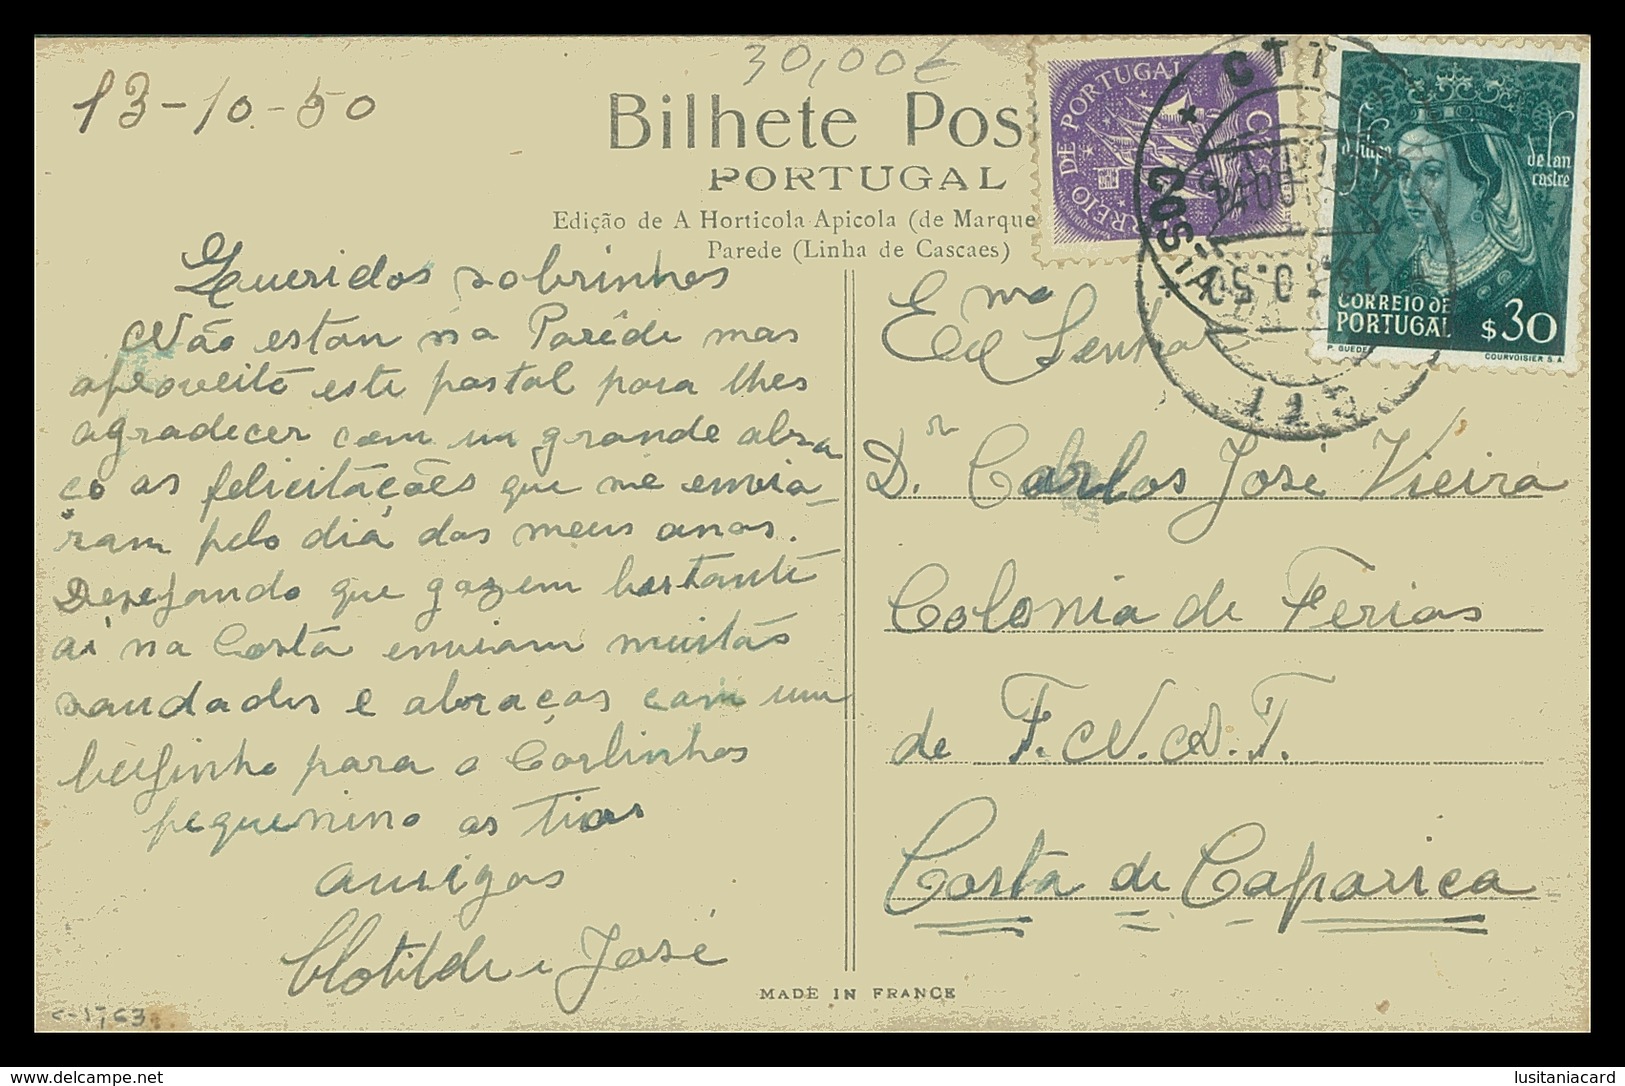 13-10-50
30,00€
Bilhete Pos
PORTUGAL
Edição de A Horticola-Apicola (de Marque
Parede (Linha de Cascaes)
Queridos sobrinhos
Não estou na Paréde mas
aproveito este postal para lhes
agradecer com um grande abra
ço as felicitações que me envia
ram pelo dia dos meus anos.
Desejando que gozem bastante
ai na Costa enviam muitas
saudades e abraços com um
beijinho para o Carlinhos
pequenino os tios
amigos
Clotilde e José
Ema
Senhor
Dr. Carlos José Vieira
Colonia de Ferias
de F.N.A.T.
Costa de Caparica
MADE IN FRANCE
CORREIO DE PORTUGAL
CTT
COSTA
113
de lan
castre
CORREIO DE
PORTUGAL $30
COURVOISIER S.A.
delcampe.net
lusitaniacard